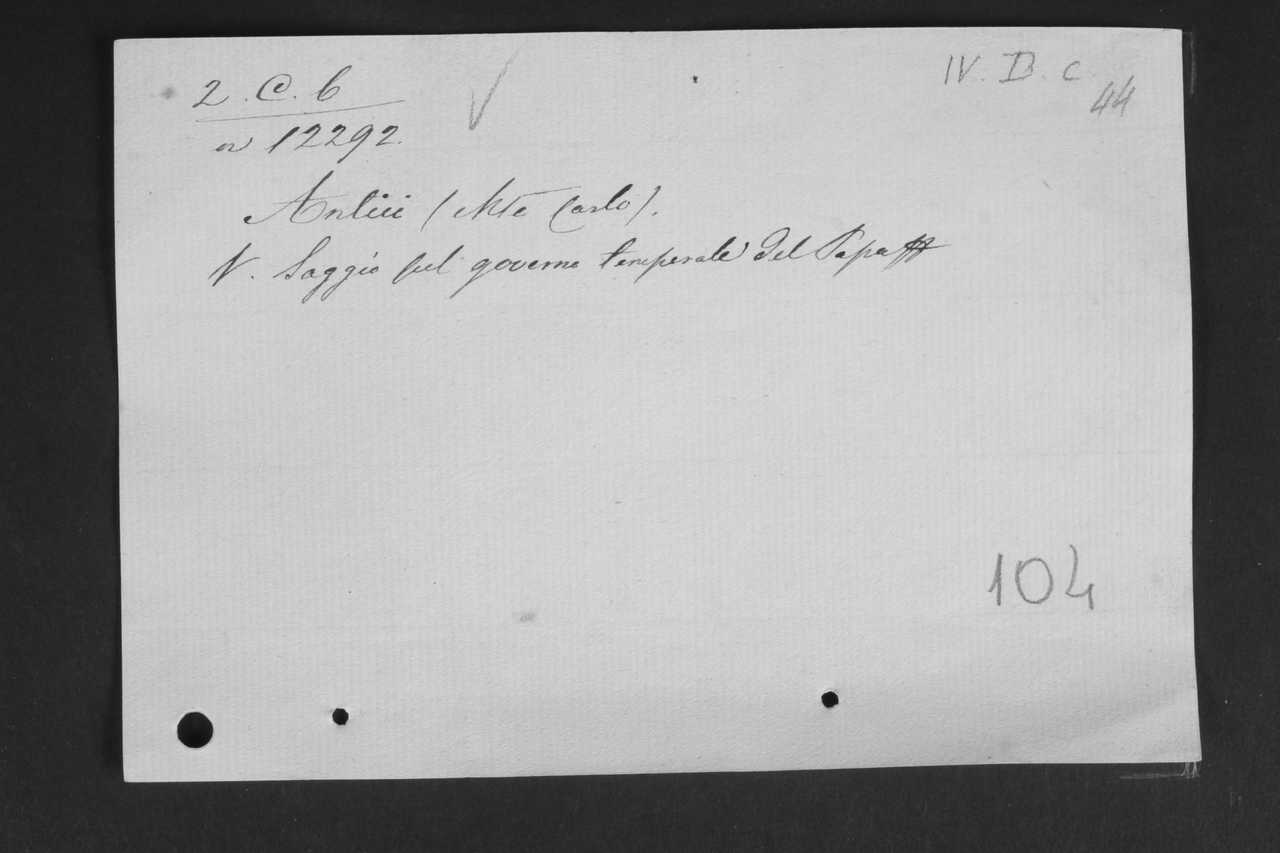 2. C. b
IV. B. c.
44
n 12292.
Antici (Mse Carlo).
V. Saggio sul governo temporale del Papa
104